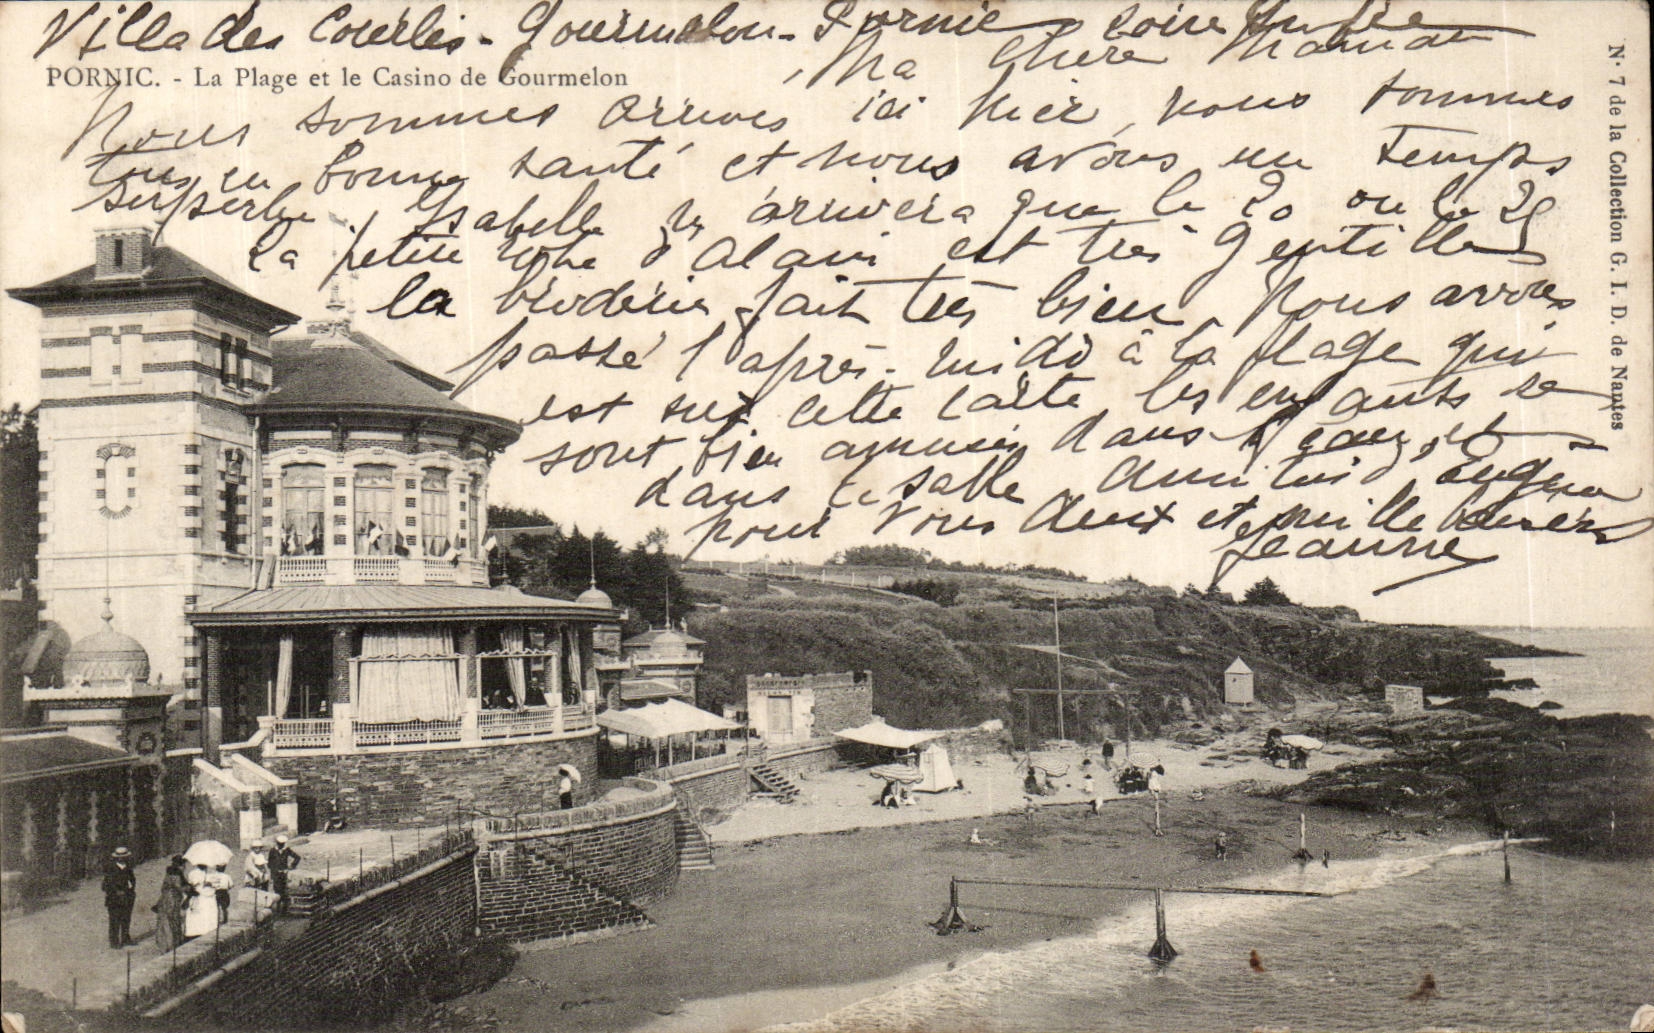 Villa des Courlis - Gourmelon - Pornic Loire Infre
PORNIC. - La Plage et le Casino de Gourmelon
Ma Chère Maman
Nous sommes arrivés ici hier, nous sommes
tous en bonne santé et nous avons un temps
superbe, Ysabelle n'arrivera que le 20 ou le 25
La petite robe d'Alain est très gentille
la broderie fait très bien. Nous avons
passé l'après-midi à la plage qui
est sur cette carte les enfants se
sont bien amusés dans l'eau, et
dans le sable. Amitiés
pour vous deux et mille baisers
Jeanne
N° 7 de la Collection G. I. D. de Nantes